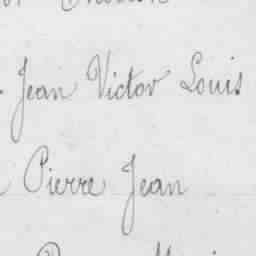 Jean Victor Louis
Pierre Jean